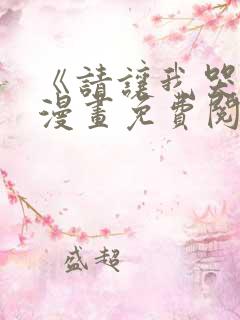 《請讓我哭
漫畫免費閱
盛超